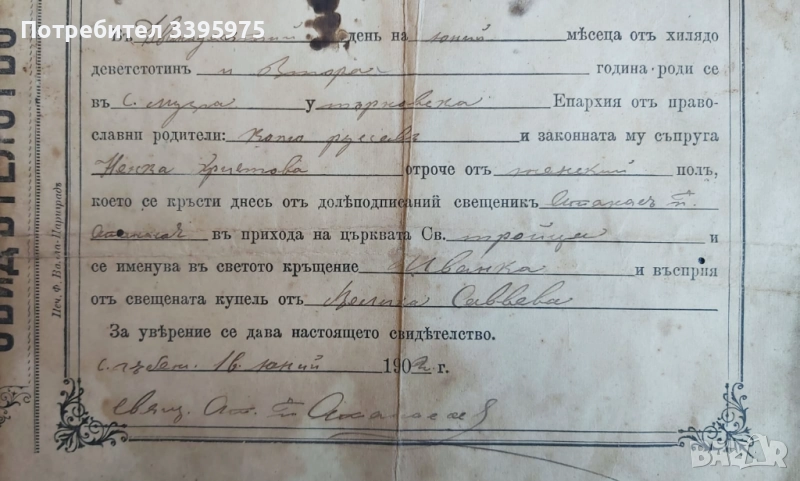 Потребител 3395975
Въ день на юний мѣсеца отъ хилядо
деветстотинъ и втора година роди се
въ с. у търновска Епархия отъ право-
славни родители: Кольо Русевъ и законната му съпруга
Ненка Христова отроче отъ женский полъ,
което се кръсти днесь отъ долѣподписаний свещеникъ Атанасъ П.
Атанасов въ прихода на църквата Св. Тройца и
се именува въ светото кръщение Иванка и въсприя
отъ свещената купель отъ Савева
За увѣрение се дава настоящето свидѣтелство.
с. 16 юний 1902 г.
Свящ. Ат. П. Атанасов
СВИДѢТЕЛСТВО
Печ. Ф. Цариградъ
БАЗАР
bazar.bg